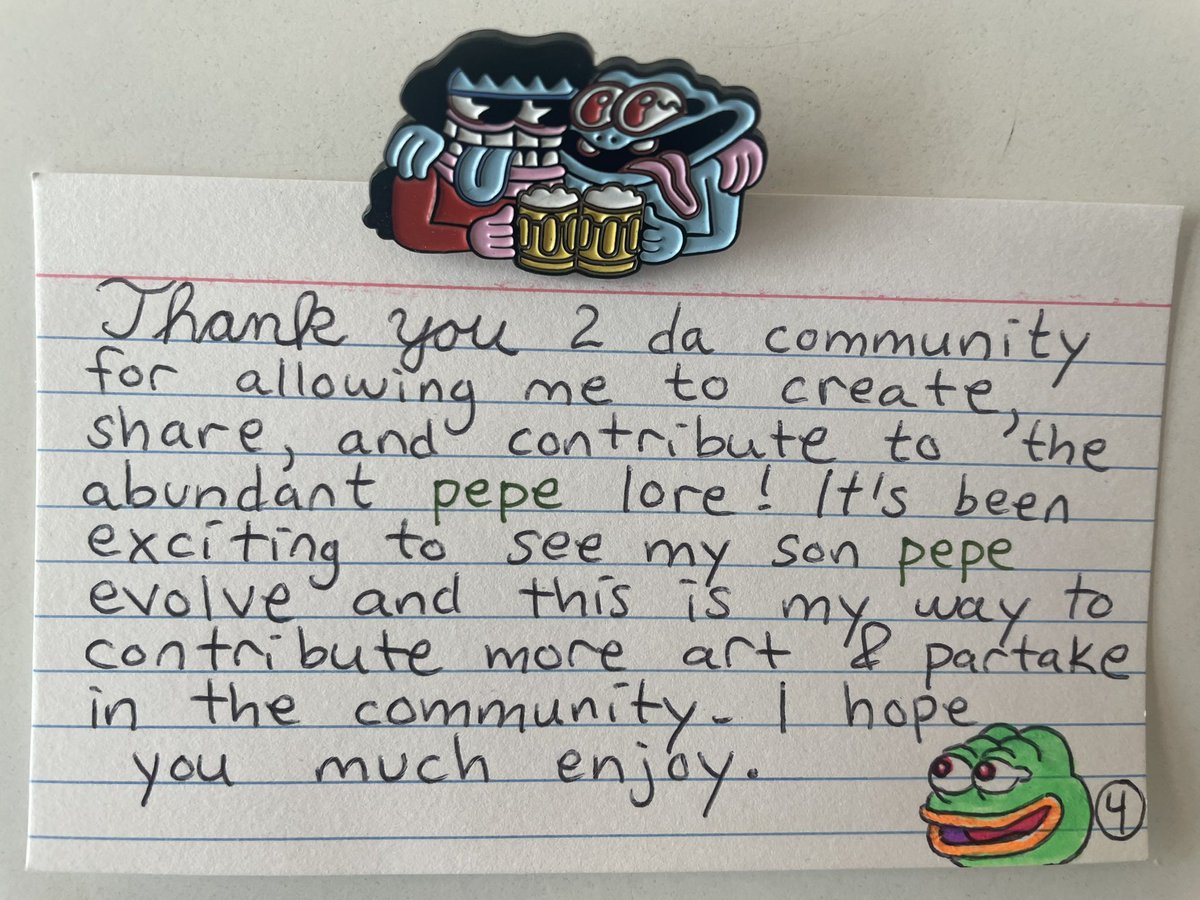 Thank you 2 da community
for allowing me to create,
share, and contribute to the
abundant pepe lore! It's been
exciting to see my son pepe
evolve and this is my way to
contribute more art & partake
in the community. I hope
you much enjoy.
4